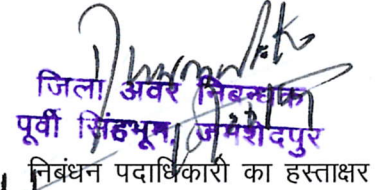 जिला अवर निबन्धक
पूर्वी सिंहभूम, जमशेदपुर
निबंधन पदाधिकारी का हस्ताक्षर